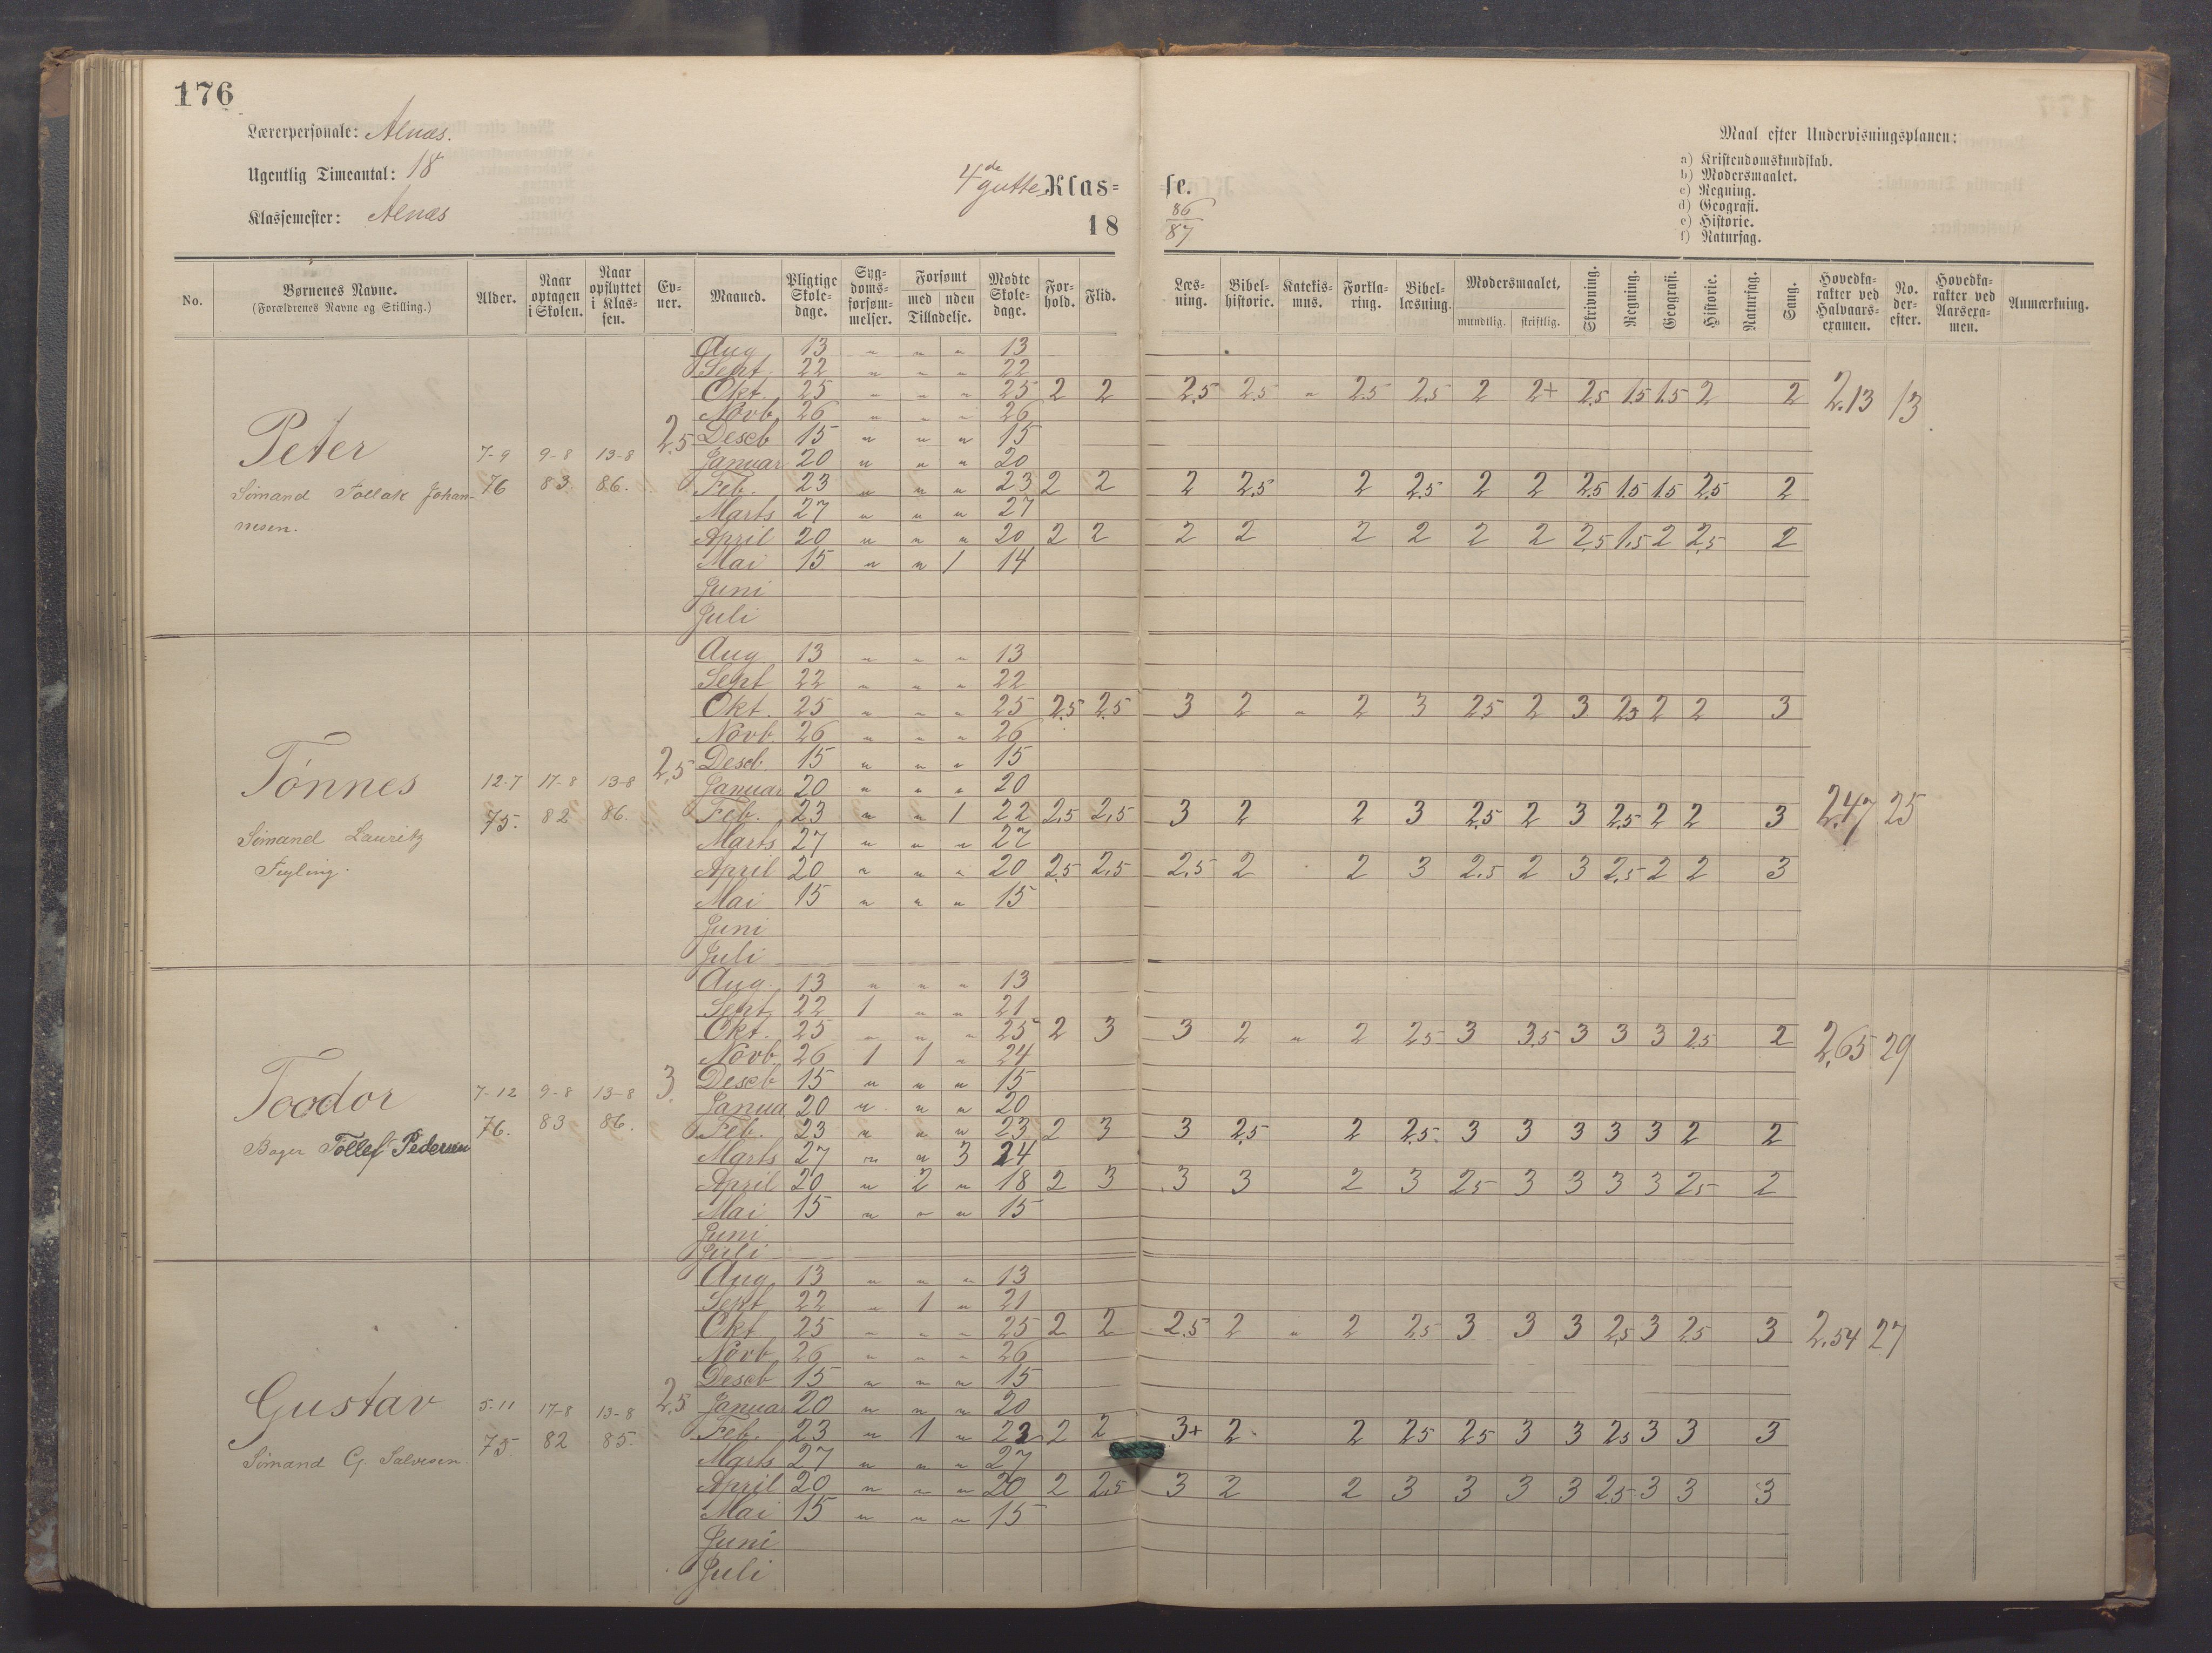 176
Lærerpersonale: Alnæs.
Ugentlig Timeantal: 18
Klassemester: Alnæs
4de gutte Klas= se.
18 86/87
Maal efter Undervisningsplanen:
a) Kristendomskundskab.
b) Modersmaalet.
c) Regning.
d) Geografi.
e) Historie.
f) Naturfag.
No. | Børnenes Navne. (Forældrenes Navne og Stilling.) | Alder. | Naar optagen i Skolen. | Naar opflyttet i Klas-sen. | Ev-ner. | Maaned. | Pligtige Skole-dage. | Syg-doms-forsøm-melser. | Forsømt med uden Tilladelse. | Mødte Skole-dage. | For-hold. | Flid. | Læs-ning. | Bibel-historie. | Katekis-mus. | Forkla-ring. | Bibel-læsning. | Modersmaalet, mundtlig. skriftlig. | Skrivning. | Regning. | Geografi. | Historie. | Naturfag. | Sang. | Hovedka-rakter ved Halvaars-examen. | No. der-efter. | Hovedka-rakter ved Aarsexa-men. | Anmærkning.
Peter
Sömand Tollak Johan-
nesen.
7-9 76 | 9-8 83. | 13-8 86. | 2,5
Aug 13 " " " 13
Sept 22 " " " 22
Okt. 25 " " " 25 2 2 2,5 2,5 " 2,5 2,5 2 2+ 2,5 1,5 1,5 2 2 2,13 13
Novb. 26 " " " 26
Deseb 15 " " " 15
Januar 20 " " " 20
Feb. 23 " " " 23 2 2 2 2,5 2 2,5 2 2 2,5 1,5 1,5 2,5 2
Marts 27 " " " 27
April 20 " " " 20 2 2 2 2 2 2 2 2 2,5 1,5 2 2,5 2
Mai 15 " " 1 14
Juni
Juli
Tönnes
Sömand Lauritz
12-7 75. | 17-8 82 | 13-8 86. | 2,5
Aug 13 " " " 13
Sept 22 " " " 22
Okt. 25 " " " 25 2,5 2,5 3 2 " 2 3 2,5 2 3 2,5 2 2 3
Novb. 26 " " " 26
Deseb. 15 " " " 15
Januar 20 " " " 20
Feb. 23 " " 1 22 2,5 2,5 3 2 2 3 2,5 2 3 2,5 2 2 3 2,47 25
Marts 27 " " " 27
April 20 " " " 20 2,5 2,5 2,5 2 2 3 2,5 2 3 2,5 2 2 3
Mai 15 " " " 15
Juni
Juli
Teodor
Bager Tollef Pedersen
7-12 76. | 9-8 83 | 13-8 86. | 3.
Aug. 13 " " " 13
Sept. 22 1 " " 21
Okt. 25 " " " 25 2 3 3 2 " 2 2,5 3 3,5 3 3 3 2,5 2 2,65 29
Novb 26 1 1 " 24
Deseb 15 " " " 15
Janua 20 " " " 20
Feb. 23 " " " 23 2 3 3 2,5 2 2,5 3 3 3 3 3 2 2
Marts 27 " " 3 24
April 20 " 2 " 18 2 3 3 3 2 3 2,5 3 3 3 3 2,5 2
Mai 15 " " " 15
Juni
Juli
Gustav
Sömand G. Salvesen
5-11 75. | 17-8 82 | 13-8 85. | 2,5
Aug. 13 " " " 13
Sept 22 " 1 " 21
Okt. 25 " " " 25 2 2 2,5 2 " 2 2,5 3 3 3 2,5 3 2,5 3 2,54 27
Novb 26 " " " 26
Deseb 15 " " " 15
Januar 20 " " " 20
Feb. 23 " 1 " 22 2 2 3+ 2 2 2,5 2,5 3 3 2,5 3 3 3
Marts 27 " " " 27
April 20 " " " 20 2 2,5 3 2 2 3 3 3 3 2,5 3 3 3
Mai 15 " " " 15
Juni
Juli